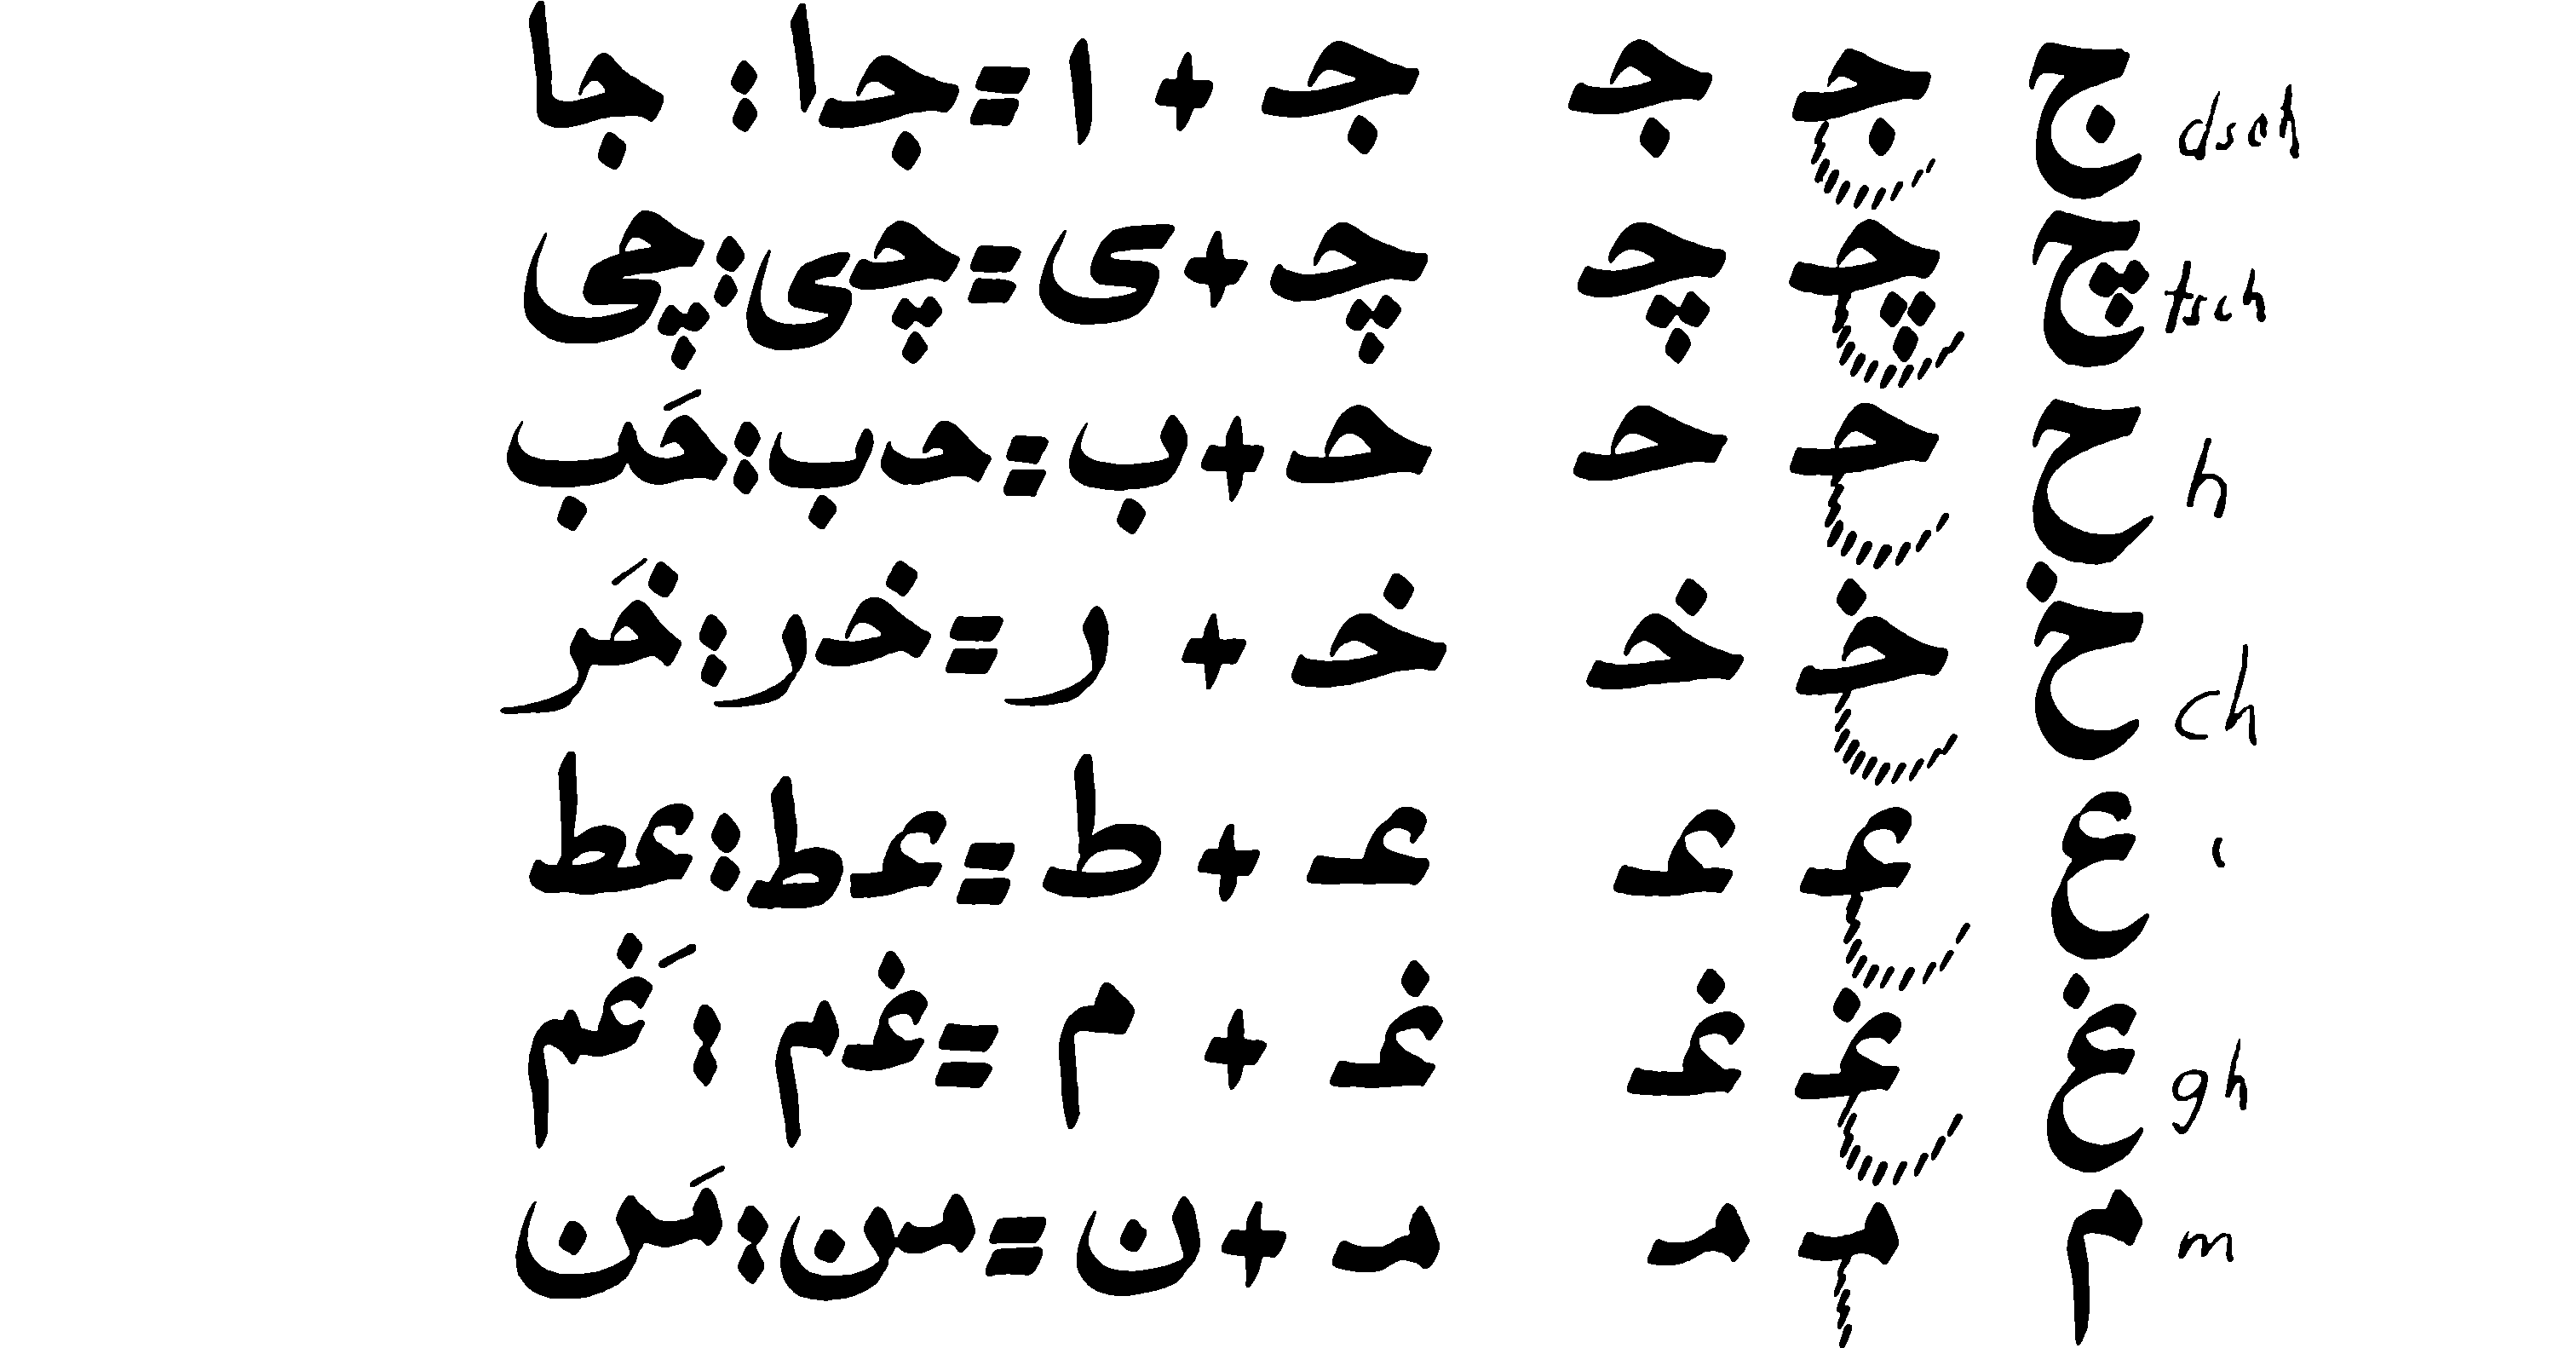 dsch ج جـ جـ جـ + ا = جـا : جا
tsch چ چـ چـ چـ + ی = چـی : چی
h ح حـ حـ حـ + ب = حـب : حَب
ch خ خـ خـ خـ + ر = خـر : خَر
‘ ع عـ عـ عـ + ط = عـط : عط
gh غ غـ غـ غـ + م = غـم : غَم
m م مـ مـ مـ + ن = مـن : مَن